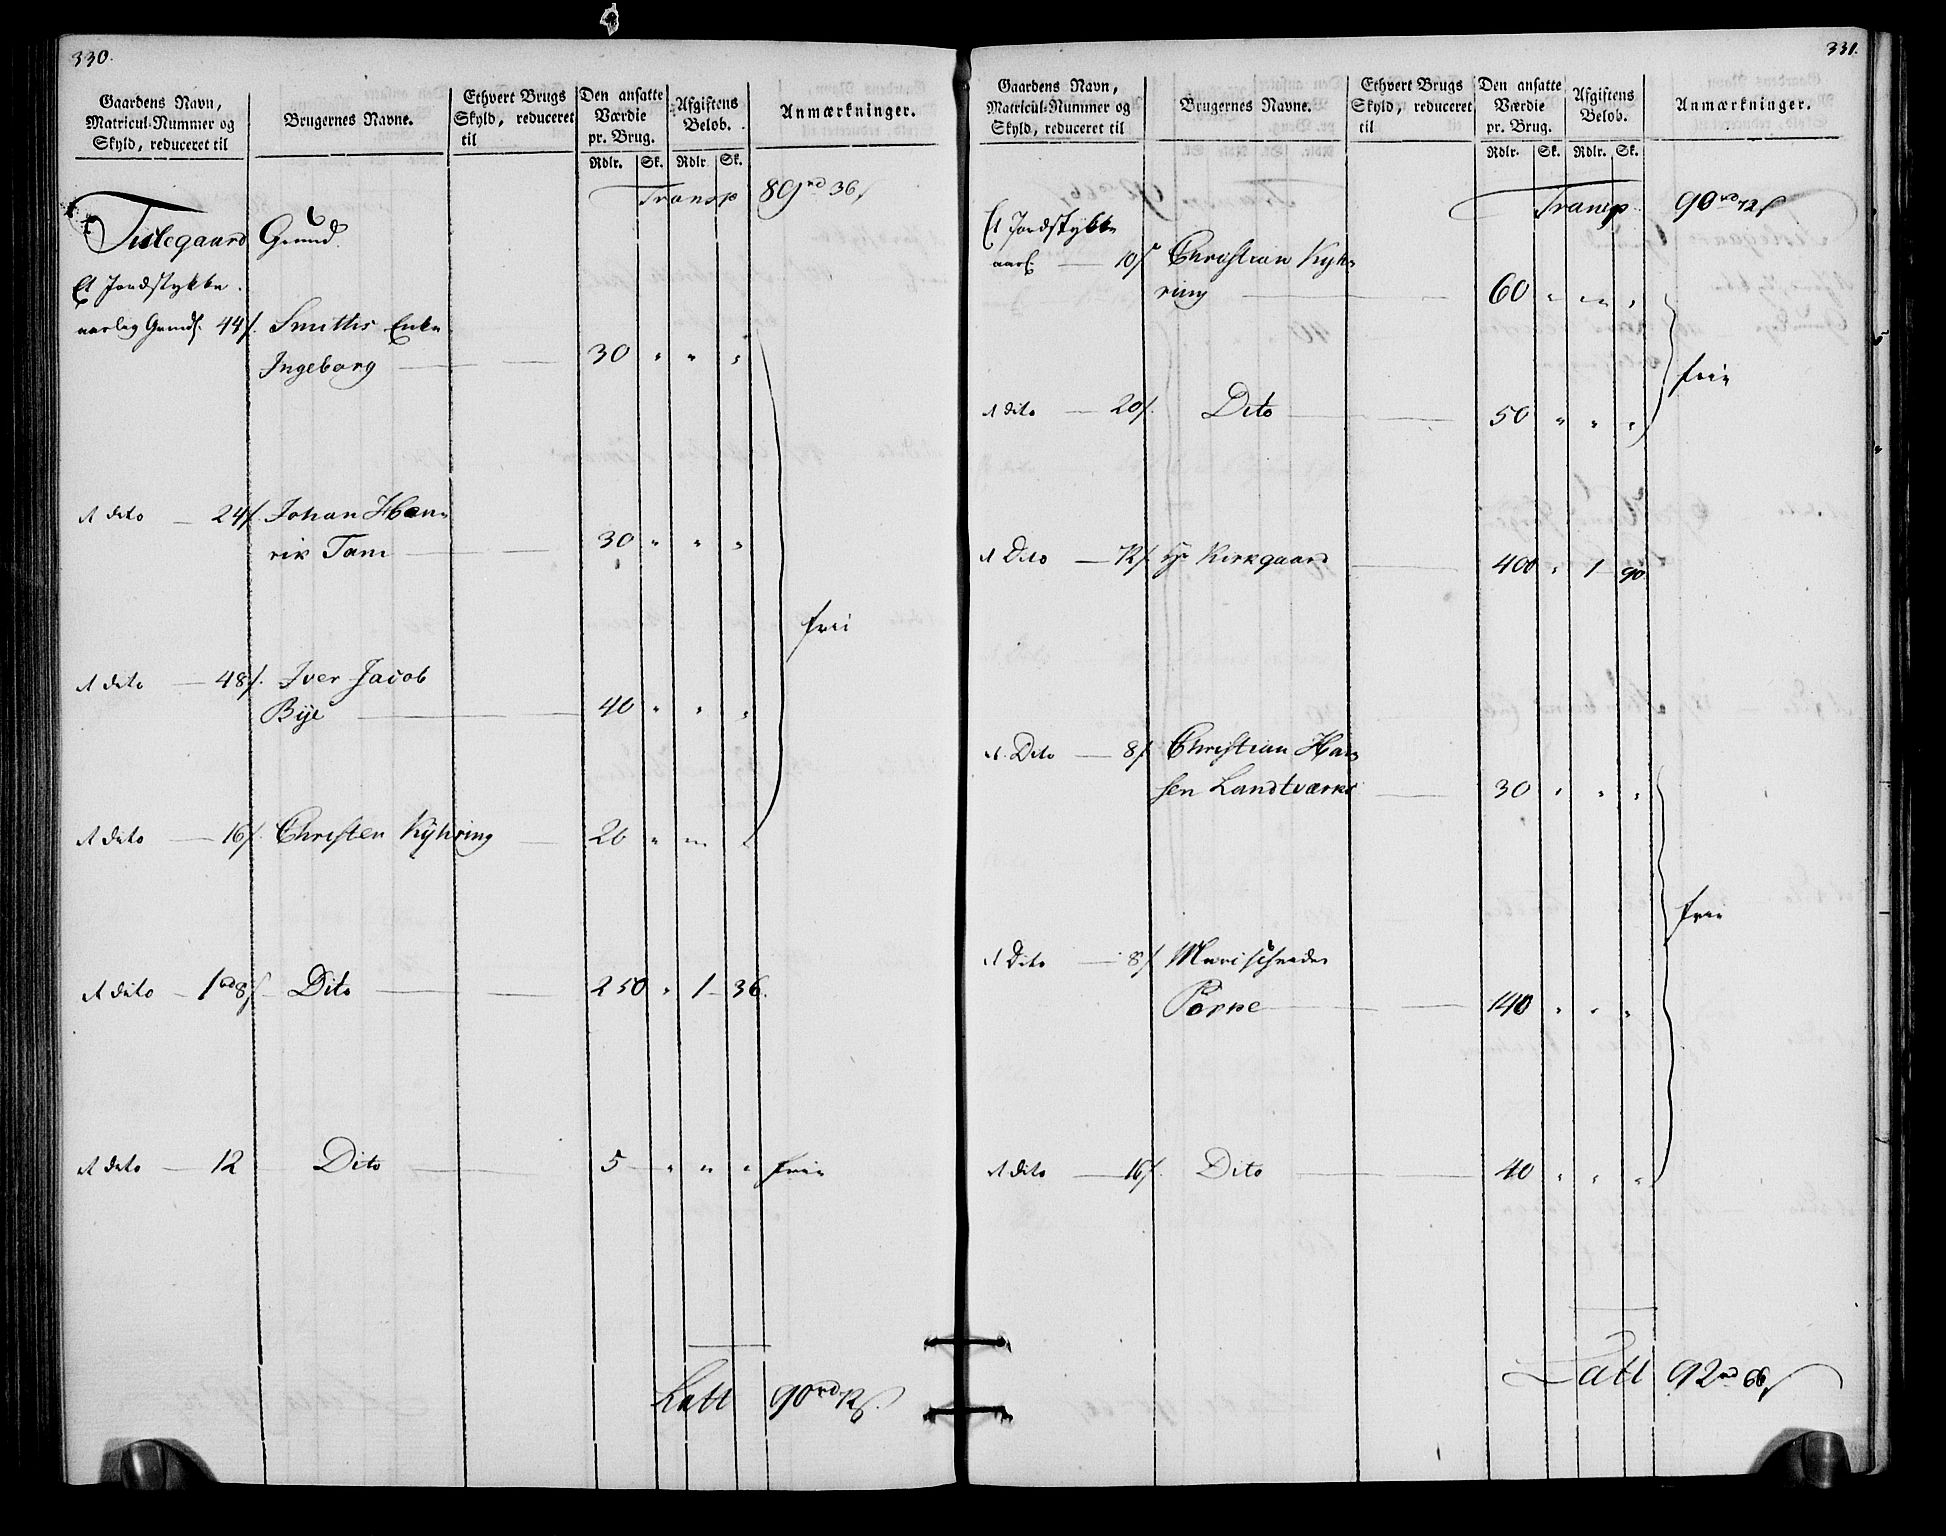 330.
Gaardens Navn, Matricul-Nummer og Skyld, reduceret til
Brugernes Navne.
Ethvert Brugs Skyld, reduceret til
Den ansatte Værdie pr. Brug.
Afgiftens Belob.
Anmærkninger.
Rdlr. Sk. Rdlr. Sk.
Transp 89 rd 36 s
Grund
Et Jordstykke
aarlig Grunds. 44 s. Smitths Enke
Ingeborg 30 " " "
1 dito 24 s. Johan Hen-
rik Tam 30 " " "
frii
1 dito 48 s. Iver Jacob
Bye 40 " " "
1 dito 16 s. Christen Kyhring 20 " " "
1 dito 1 rd 8 s Dito 250 " 1 36.
1 dito 12 Dito 5 " " " frie
Latt 90 rd 72 s.
331.
Gaardens Navn, Matricul-Nummer og Skyld, reduceret til
Brugernes Navne.
Ethvert Brugs Skyld, reduceret til
Den ansatte Værdie pr. Brug.
Afgiftens Belob.
Anmærkninger.
Rdlr. Sk. Rdlr. Sk.
Transp 90 rd 72 s
Et Jordstykke
10 s Christian Kyh-
ring 60 " " "
frie
1 dito 20 s. Dito 50 " " "
1 Dito 72 s. Hr Kirkgaard 400 " 1 90
1 Dito 8 s Christian Han-
sen Landtværks 30 " " "
frie
1 Dito 8 s
140 " " "
1 dito 16 s. Dito 40 " " "
Latt 92 rd 66 s